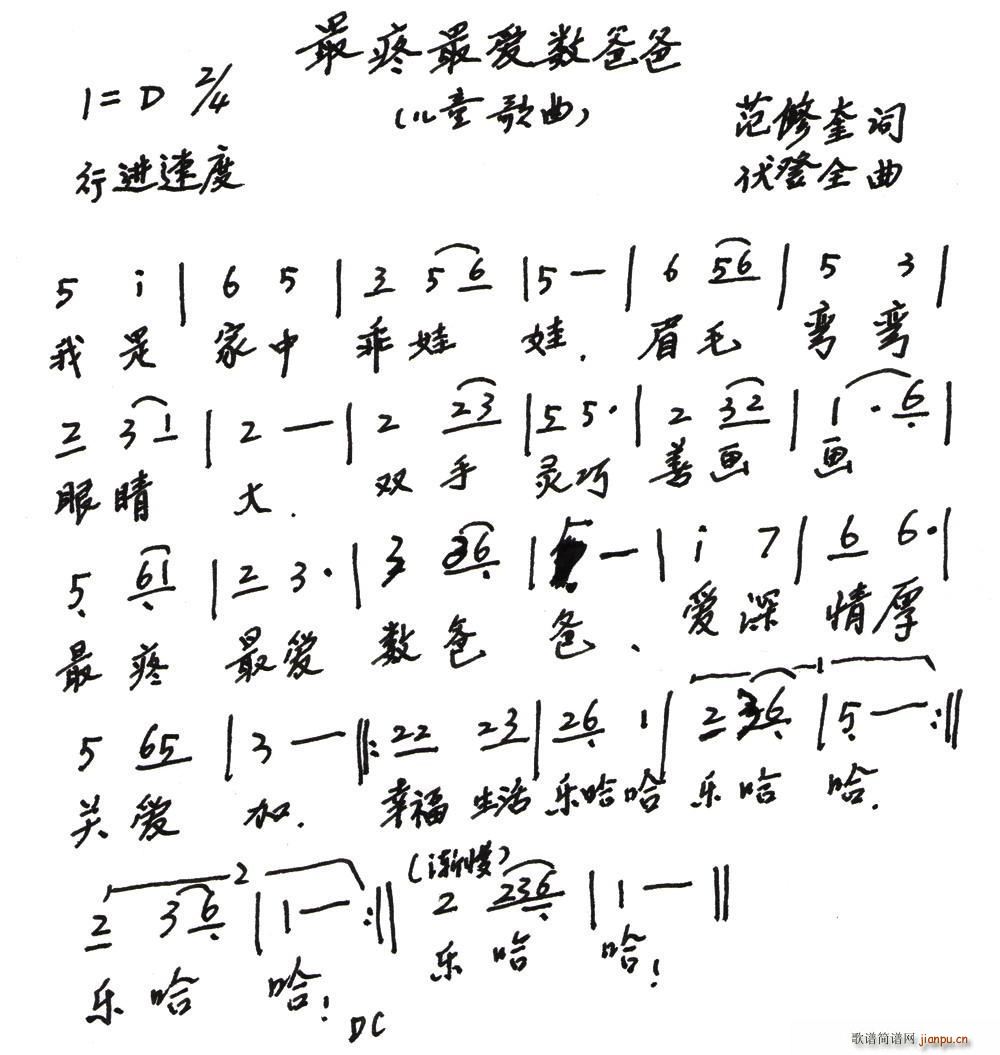 最疼最爱数爸爸
1=D 2/4
(儿童歌曲)
范修奎词
行进速度
伏登全曲
5 i | 6 5 | 3 5 6 | 5 — | 6 56 | 5 3 |
我是 家中 乖娃 娃. 眉毛 弯弯
2 3 1 | 2 — | 2 23 | 5 5· | 2 32 | 1 · 6 |
眼睛 大. 双手 灵巧 善画 画
5 61 | 2 3· | 3 36 | — | i 7 | 6 6· |
最疼 最爱 数爸 爸、 爱深 情厚
5 65 | 3 — ‖: 22 23 | 26 1 | 2 36 | 5 — :‖
关爱 加. 幸福 生活 乐哈哈 乐哈 哈.
2
2 3 6 | 1 — :‖ (渐慢) 2 236 | 1 — ‖
乐哈 哈! 乐哈 哈!
DC
歌谱简谱网 jianpu.cn